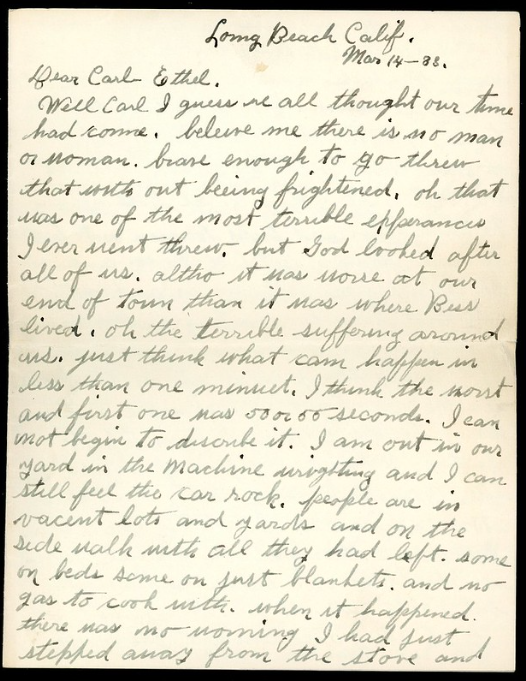 Long Beach Calif.
Mar 14-33.
Dear Carl Ethel.
Well Carl I guess we all thought our time
had come. beleive me there is no man
or woman. brave enough to go threw
that with out beeing frightened. oh that
was one of the most terrible
I ever went threw. but God looked after
all of us. altho it was worse at our
end of town than it was where Bess
lived. oh the terrible suffering around
us. just think what can happen in
less than one minuet. I think the worst
and first one was 50 or 55 seconds. I can
not begin to discribe it. I am out in our
yard in the Machine and I can
still feel the car rock. people are in
vacent lots and yards and on the
side walk with all they had left. some
on beds some on just blankets. and no
gas to cook with. when it happened.
there was no worning I had just
stepped away from the stove and